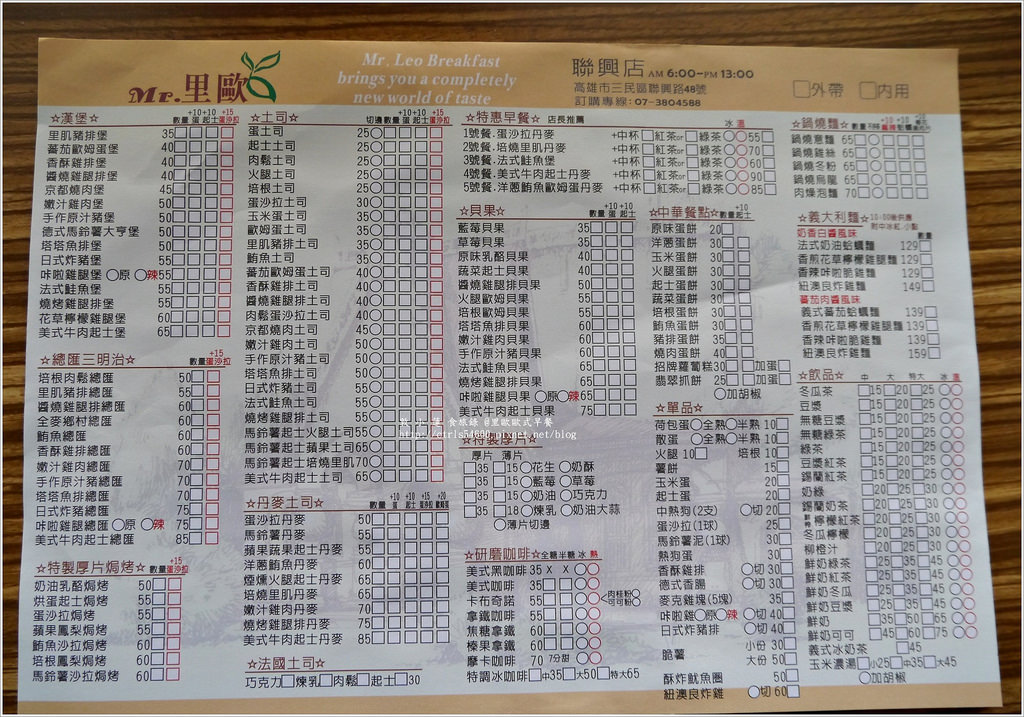 Mr.里歐
Mr. Leo Breakfast
brings you a completely
new world of taste
聯興店 AM 6:00-PM 13:00
高雄市三民區聯興路48號
訂購專線: 07-3804588
□外帶 □內用
☆漢堡☆ 數量 +10蛋 +10起士 +15蛋沙拉
里肌豬排堡 35
蕃茄歐姆蛋堡 40
香酥雞排堡 40
醬燒雞排堡 40
京都燒肉堡 45
嫩汁雞肉堡 50
手作原汁豬堡 50
德式馬鈴薯大亨堡 50
塔塔魚排堡 50
日式炸豬堡 50
咔啦雞腿堡 ○原 ○辣 55
法式鮭魚堡 55
燒烤雞腿排堡 55
花草檸檬雞腿堡 60
美式牛肉起士堡 65
☆總匯三明治☆ 數量 +15蛋沙拉
培根肉鬆總匯 50
里肌豬排總匯 55
醬燒雞腿總匯 55
全麥鄉村總匯 60
鮪魚總匯 60
香酥雞排總匯 60
嫩汁雞肉總匯 70
手作原汁總匯 70
塔塔魚排總匯 70
日式炸豬總匯 70
咔啦雞腿總匯 ○原 ○辣 75
美式牛肉起士總匯 85
☆特製厚片焗烤☆ 數量 +15蛋沙拉
奶油乳酪焗烤 50
烘蛋起士焗烤 50
蛋沙拉焗烤 55
蘋果鳳梨焗烤 55
鮪魚沙拉焗烤 60
培根鳳梨焗烤 60
馬鈴薯沙拉焗烤 60
☆土司☆ 切邊 數量 +10蛋 +10起士 +15蛋沙拉
蛋土司 25
起士土司 25
肉鬆土司 25
火腿土司 25
培根土司 25
蛋沙拉土司 30
玉米蛋土司 30
歐姆蛋土司 30
里肌豬排土司 35
鮪魚土司 35
蕃茄歐姆蛋土司 40
香酥雞排土司 40
醬燒雞腿排土司 40
肉鬆蛋沙拉土司 40
京都燒肉土司 45
嫩汁雞肉土司 50
手作原汁土司 50
塔塔魚排土司 50
日式炸豬土司 50
法式鮭魚土司 55
燒烤雞腿排土司 55
馬鈴薯起士火腿土司 50
馬鈴薯起士蘋果土司 65
馬鈴薯起士培燒里肌 70
美式牛肉起士土司 65
☆丹麥土司☆ 數量 +10蛋 +10起士 +15蛋沙拉 +20
蛋沙拉丹麥 50
馬鈴薯丹麥 55
蘋果蔬果起士丹麥 55
洋蔥鮪魚丹麥 60
煙燻火腿起士丹麥 65
培燒里肌丹麥 65
嫩汁雞肉丹麥 70
燒烤雞腿排丹麥 75
美式牛肉起士丹麥 85
☆法國土司☆
巧克力□煉乳□肉鬆□起士□30
☆特惠早餐☆ 店長推薦 冰 溫
1號餐.蛋沙拉丹麥 +中杯□紅茶or□綠茶○○55
2號餐.培燒里肌丹麥 +中杯□紅茶or□綠茶○○70
3號餐.法式鮭魚堡 +中杯□紅茶or□綠茶○○60
4號餐.美式牛肉起士丹麥 +中杯□紅茶or□綠茶○○90
5號餐.洋蔥鮪魚歐姆蛋丹麥 +中杯□紅茶or□綠茶○○85
☆貝果☆ 數量 +10蛋 +10起士
藍莓貝果 35
草莓貝果 35
原味乳酪貝果 40
蔬菜起士貝果 40
醬燒雞腿排貝果 50
火腿歐姆貝果 50
培根歐姆貝果 50
塔塔魚排貝果 60
嫩汁雞肉貝果 60
手作原汁貝果 60
法式鮭魚貝果 65
燒烤雞腿排貝果 65
咔啦雞腿貝果 ○原○辣 65
美式牛肉起士貝果 75
散步達.食旅錄 @里歐歐式早餐
http://etrls54690.pixnet.net/blog
☆特製厚片☆
厚片 薄片
□35 □15○花生 ○奶酥
□35 □15○藍莓 ○草莓
□35 □15○奶油 ○巧克力
□35 □18○煉乳 ○奶油大蒜
○薄片切邊
☆研磨咖啡☆ 全糖 半糖 冰 熱
美式黑咖啡 35 x x ○○
美式咖啡 35
卡布奇諾 55 肉桂粉○ 可可粉○
拿鐵咖啡 55
焦糖拿鐵 60
榛果拿鐵 60
摩卡咖啡 70 7分甜 ○○
特調冰咖啡□中35□大50□特大65
☆中華餐點☆ 數量 +10起士
原味蛋餅 20
洋蔥蛋餅 30
玉米蛋餅 30
火腿蛋餅 30
起士蛋餅 30
蔬菜蛋餅 30
培根蛋餅 30
鮪魚蛋餅 30
豬排蛋餅 30
燒肉蛋餅 40
招牌蘿蔔糕 30 加蛋□
翡翠抓餅 25 加蛋□
○加胡椒
☆單品☆
荷包蛋○全熟○半熟 10
散蛋 ○全熟○半熟 10
火腿 10□ 培根 10
薯餅 15
玉米蛋 20
起士蛋 20
中熱狗(2支) ○切 20
蛋沙拉(1球) 25
馬鈴薯泥(1球) 30
熱狗蛋 30
香酥雞排 ○切 30
德式香腸 ○切 30
麥克雞塊(5塊) 35
咔啦雞○原○辣 ○切 40
日式炸豬排 ○切 40
脆薯 小份 30
大份 50
酥炸魷魚圈 50
紐澳良炸雞 ○切 60
☆鍋燒麵☆ 數量 不辣
鍋燒意麵 65
鍋燒雞絲 65
鍋燒冬粉 65
鍋燒烏龍 65
肉燥泡麵 70
☆義大利麵☆ 10:00後供應
附中冰紅.小點
奶香白醬風味 數量
法式奶油蛤蠣麵 129
香煎花草檸檬雞腿麵 129
香辣咔啦脆雞麵 129
紐澳良炸雞麵 149
蕃茄肉醬風味
義式蕃茄蛤蠣麵 139
香煎花草檸檬雞腿麵 139
香辣咔啦脆雞麵 139
紐澳良炸雞麵 159
☆飲品☆ 中 大 特大 冰 溫
冬瓜茶 □15□20□25
豆漿 □15□20□25
無糖豆漿 □15□20□25
無糖綠茶 □15□20□25
綠茶 □15□20□25
豆漿紅茶
錫蘭紅茶
奶綠
錫蘭奶茶
檸檬紅茶
冬瓜檸檬
柳橙汁
鮮奶綠茶
鮮奶紅茶
鮮奶冬瓜
鮮奶豆漿
鮮奶
鮮奶可可 □45□60□75
義式冰奶茶 □45
玉米濃湯□小25□中35□大45
○加胡椒